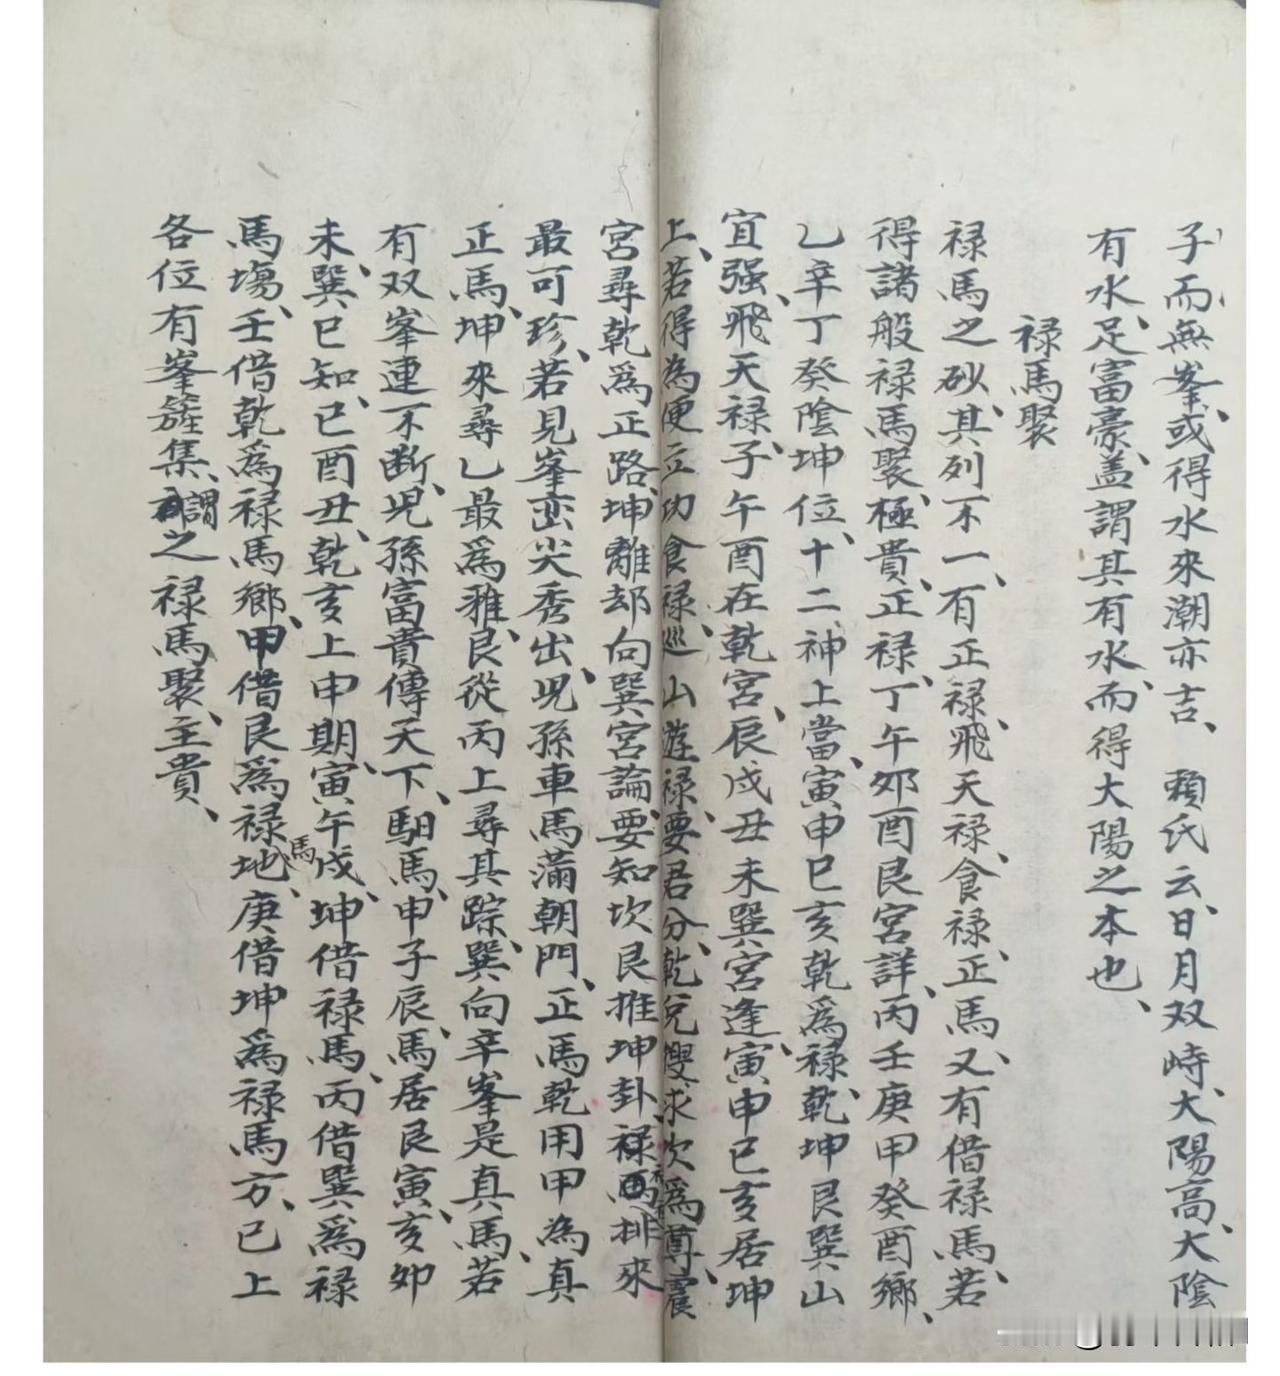 子而無峯、或得水來潮亦吉、賴氏云、日月双峙、大陽高、大陰
有水、足富豪、盖謂其有水、而得大陽之本也、
禄馬聚
禄馬之砂、其列不一、有正禄、飛天禄、食禄、正馬、又有借禄馬、若
得諸般禄馬聚、極貴、正禄、丁午夘酉艮宮詳、丙壬庚甲癸酉鄉、
乙辛丁癸陰坤位、十二神上當、寅申巳亥乾爲禄、乾坤艮巽山
宜强、飛天禄、子午酉在乾宮、辰戌丑未巽宮逢、寅申巳亥居坤
上、若得為便立功食禄、巡山遊禄、要君分、乾兌搜求坎爲尊、震
宮尋乾爲正路、坤離却向巽宮論、要知坎艮推坤卦、禄馬排來
最可珍、若見峯峦尖秀出、児孫車馬滿朝門、正馬乾用甲為真
正馬、坤來尋乙最爲雅、艮從丙上尋其踪、巽向辛峯是真馬、若
有双峯連不断、児孫富貴傳天下、馹馬、申子辰、馬居艮寅、亥夘
未、巽巳知、巳酉丑、乾亥上申期、寅午戌、馬坤借禄馬、丙借巽爲禄
馬塲、壬借乾爲禄馬鄉、甲借艮爲禄地、庚借坤爲禄馬方、已上
各位有峯簇集、謂之禄馬聚、主貴、